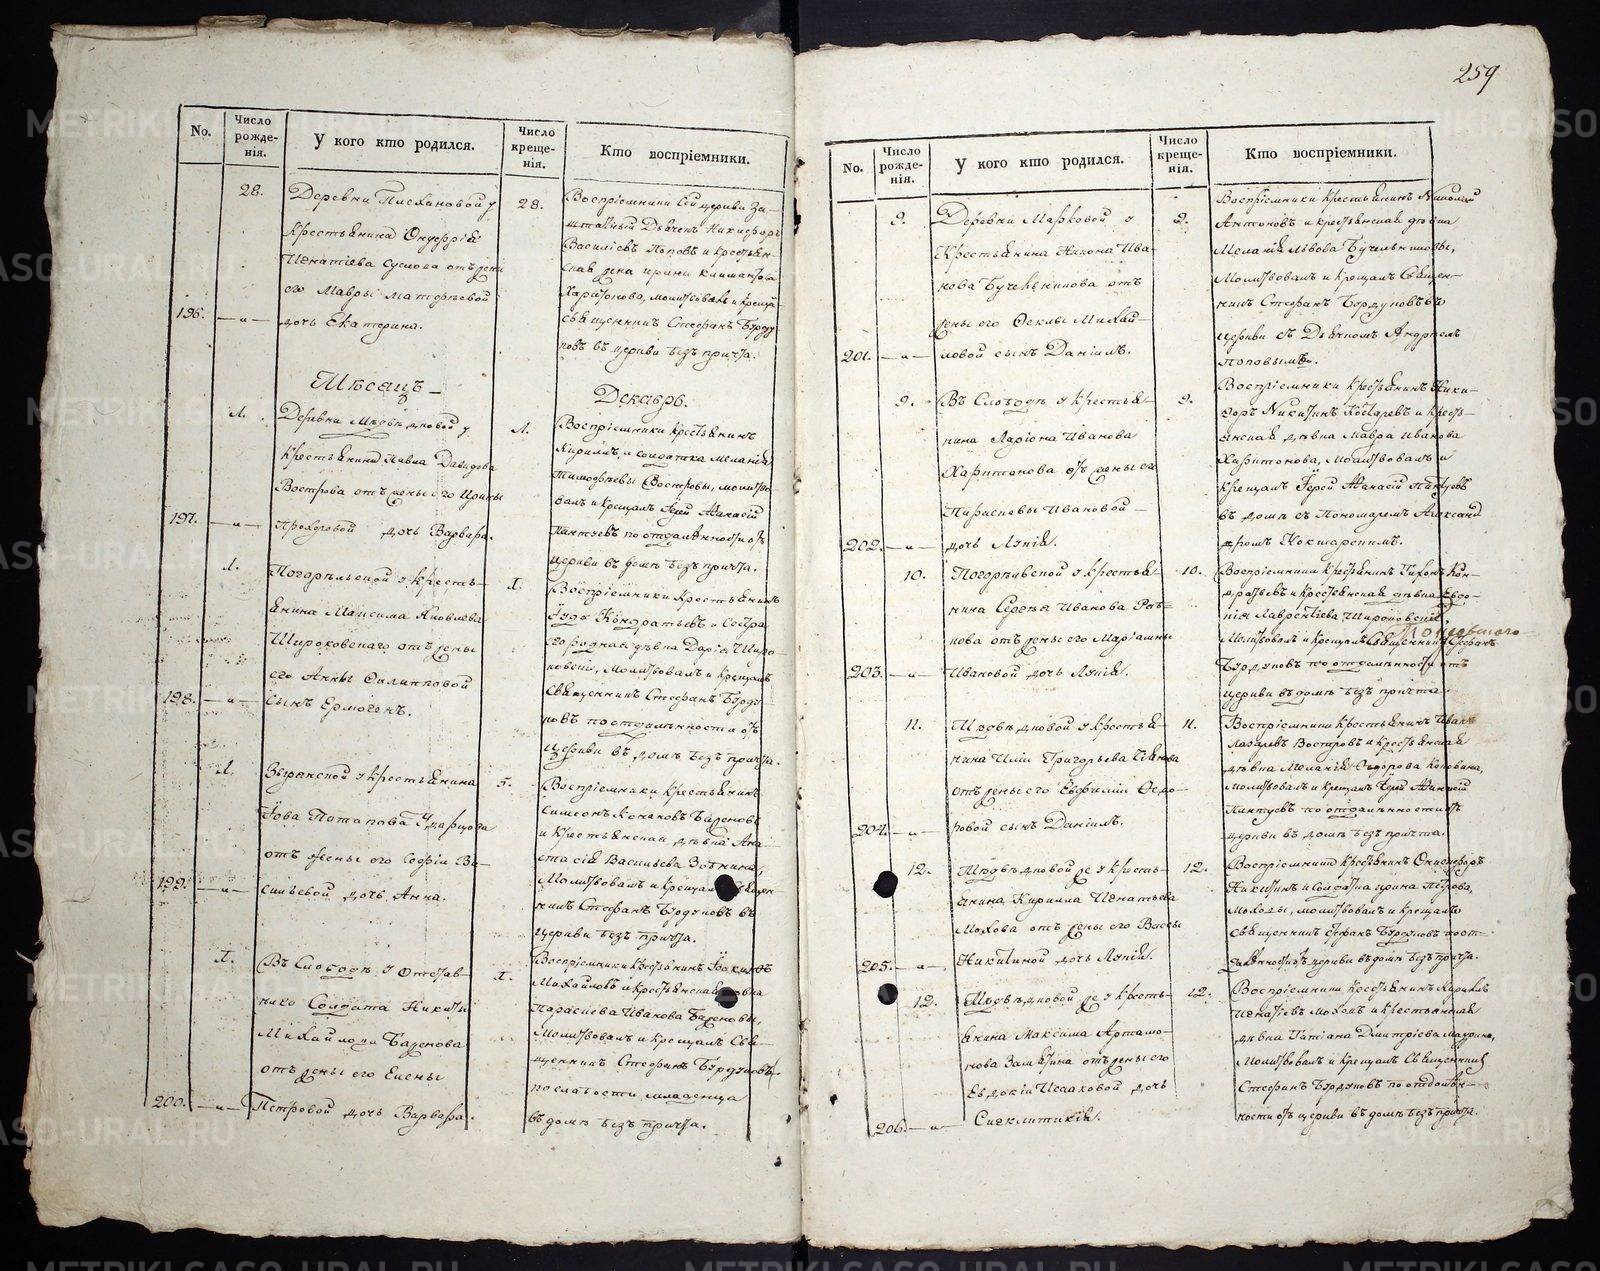 259
No.
Число рожде-нія.
У кого кто родился.
Число креще-нія.
Кто воспріемники.
28.
Деревни Плехановой у
крестьянина
Игнатіева Суслова отъ жены
его Мавры
196. —„—
дочь Екатерина.
28.
Воспріемники сей церкви за-
штатный Дьяченъ Никифоръ
Василіевъ Поповъ и крестьян-
Харитонова, молитвовалъ и крещалъ
священникъ Стефанъ Бурду
новъ въ церкви безъ причта.
Мѣсяцъ
Декабрь.
1.
Деревни Мѣдвѣдковой у
крестьянина Давидова
Вострова отъ жены его Ирины
197. —„—
Прохоровой дочь Варвара.
1.
Воспріемники крестьянинъ
Кириллъ и солдатка Меланія
Тимофѣевы Востровы, молитво
валъ и крещалъ Іерей Афанасій
по отдаленности отъ
церкви въ домѣ безъ причта.
1.
Погорѣльской у кресть-
янина Максима Яковлева
Широковскаго отъ жены
его Анны Филипповой
198. —„—
сынъ Ермогенъ.
1.
Воспріемники крестьянинъ
Іуда Кондратьевъ и сестра
его родная дѣвка Дарія Широ-
молитвовалъ и крещалъ
Священникъ Стефанъ Бурду
новъ по отдаленности отъ
церкви въ домѣ безъ причта.
1.
Зырянской у крестьянина
Іова Потапова
отъ жены его Софіи Ва-
199. —„—
сильевой дочь Анна.
5.
Воспріемники крестьянинъ
Симеонъ Бажановъ
и крестьянская дѣвка Ана-
стасія Васильева Зобнина,
молитвовалъ и крещалъ Священ
никъ Стефанъ Бурдуновъ въ
церкви безъ причта.
1.
Въ Слободѣ у отстав-
наго Солдата Никиты
Михайлова Баженова
отъ жены его Елены
200. —„—
Петровой дочь Варвара.
1.
Воспріемники крестьянинъ
Михайловъ и крестьянская дѣвка
Параскева Иванова Баженовы,
молитвовалъ и крещалъ Свя-
щенникъ Стефанъ Бурдуновъ
по слабости младенца
въ домѣ безъ причта.
No.
Число рожде-нія.
У кого кто родился.
Число креще-нія.
Кто воспріемники.
9.
Деревни Марковой у
крестьянина Никона Ива-
нова Бучельникова отъ
жены его Феклы Михай-
201. —„—
ловой сынъ Даніилъ.
9.
Воспріемники крестьянинъ Николай
Антоновъ и крестьянская дѣвка
Меланія Львова Бучельниковы,
молитвовалъ и крещалъ Священ-
никъ Стефанъ Бурдуновъ въ
церкви съ Дьячкомъ Андреемъ
Поповымъ.
9.
Въ Слободѣ у крестья-
нина Ларіона Иванова
Харитонова отъ жены его
Парасковьи Ивановой
202. —„—
дочь Лукія.
9.
Воспріемники крестьянинъ Ники-
форъ Никитинъ и кресть-
янская дѣвка Мавра Иванова
Харитонова, молитвовалъ и
крещалъ Іерей Афанасій
въ домѣ съ Пономаремъ Александ
ромъ Кокшарскимъ.
10.
Погорѣльской у крестья-
нина Сергѣя Иванова
нова отъ жены его Маріамны
203. —„—
Ивановой дочь Лукія.
10.
Воспріемники крестьянинъ Тихонъ Кон-
дратьевъ и крестьянская дѣвка Евдо-
кія Лаврентіева
молитвовалъ и крещалъ Священникъ Стефанъ
Бурдуновъ по отдаленности отъ
церкви въ домѣ безъ причта.
11.
Мѣдвѣдковой у крестья-
нина Иліи Григорьева
отъ жены его Евфиміи Федо-
204. —„—
ровой сынъ Даніилъ.
11.
Воспріемники крестьянинъ Иванъ
Лазаревъ Востровъ и крестьянская
дѣвка Меланія Федорова
молитвовалъ и крещалъ Іерей Афанасій
по отдаленности отъ
церкви въ домѣ безъ причта.
12.
Мѣдвѣдковой же у кресть-
янина Кирилла Игнатьева
Мохова отъ жены его Вассы
205. —„—
Никитиной дочь Лукія.
12.
Воспріемники крестьянинъ Онисифоръ
Никитинъ и солдатка Ирина Петрова,
Моховы, молитвовалъ и крещалъ
священникъ Стефанъ Бурдуновъ по от-
даленности отъ церкви въ домѣ безъ причта.
12.
Мѣдвѣдковой же у кресть-
янина Максима Артамо-
нова Замятина отъ жены его
Евдокіи Исааковой дочь
206. —„—
Сигклитикія.
12.
Воспріемники крестьянинъ Кириллъ
Игнатіевъ Моховъ и крестьянская
дѣвка Татіана Дмитріева
молитвовалъ и крещалъ Священникъ
Стефанъ Бурдуновъ по отдален-
ности отъ церкви въ домѣ безъ причта.
METRIKI.GASO-URAL.RU